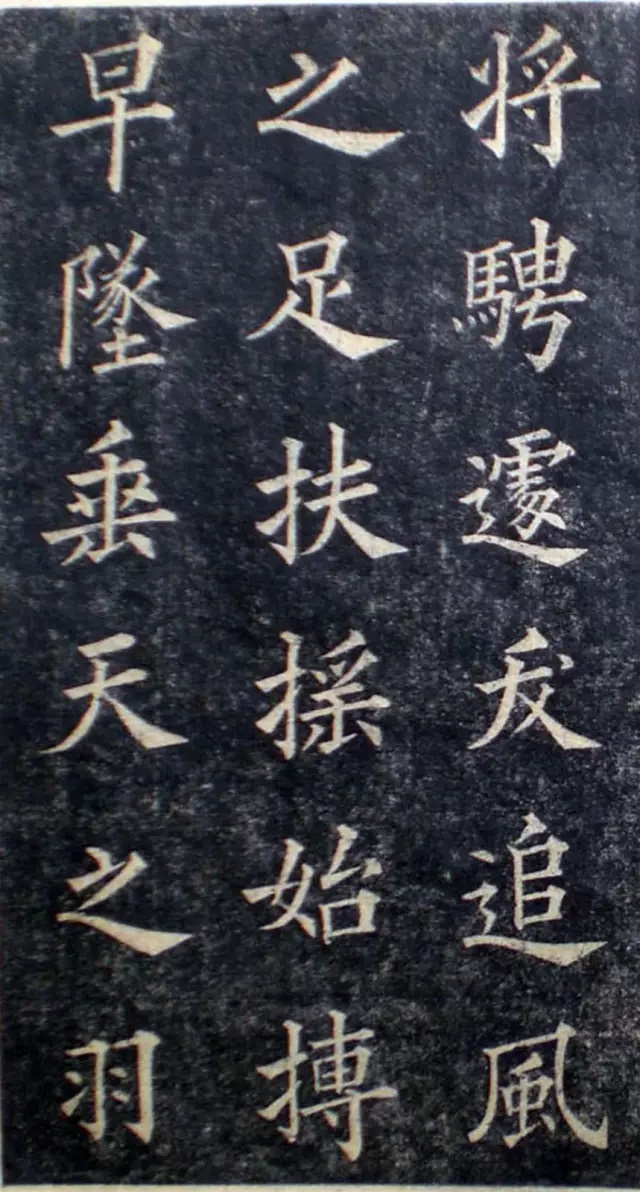 将騁遽犮追風
之足扶摇始搏
早墜垂天之羽